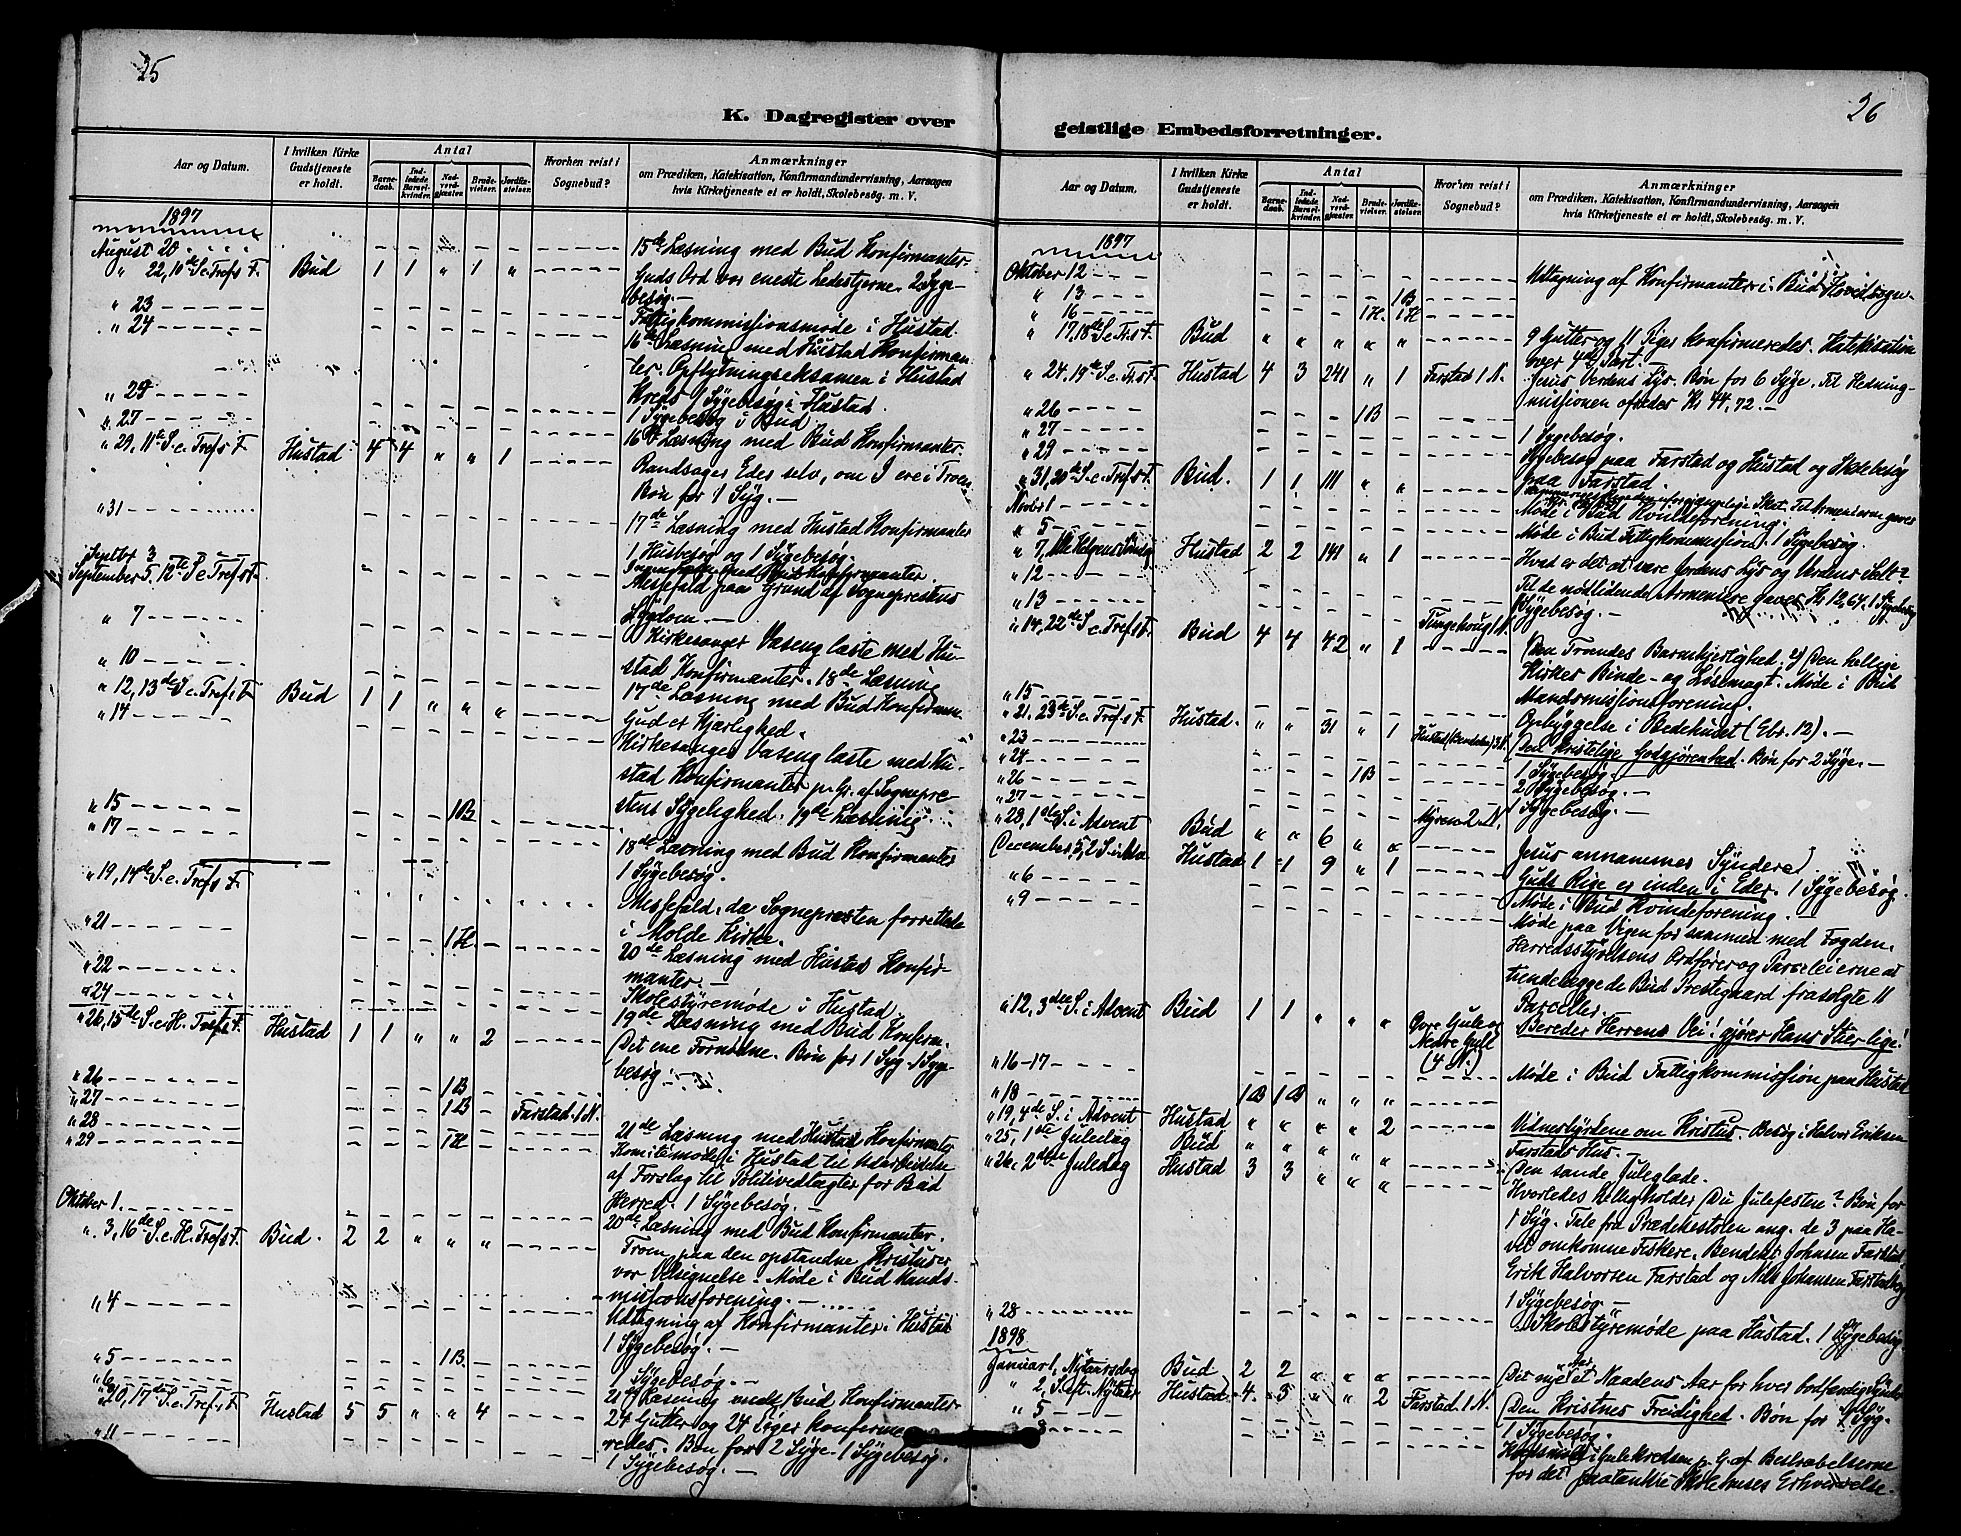 25
K. Dagregister over
Aar og Datum.
I hvilken Kirke Gudstjeneste er holdt.
Antal
Barnedaab.
Indledede Barselkvinder.
Nadverdgjæster.
Brudevielser.
Jordfæstelser.
Hvorhen reist i Sognebud?
Anmærkninger
om Prædiken, Katekisation, Konfirmandundervisning, Aarsagen
hvis Kirketjeneste ei er holdt, Skolebesøg. m. V.
1897
August 20
15de Læsning med Bud Konfirmanter.
" 22, 10de S. e. Tref. F. Bud 1 1 " 1 "
Guds Ord vor eneste Ledestjerne. 2 Syge-
besøg.
" 23
Fattigkommissionsmøde i Hustad.
" 24
16de Læsning med Hustad Konfirman-
ter. Opflytningseksamen i Hustad
Kreds. 1 Sygebesøg i Hustad.
1 Sygebesøg i Bud.
" 27
16de Læsning med Bud Konfirmanter.
" 29, 11te S. e. Trefs F. Hustad 4 4 " " 1
Randsager Eder selv, om I ere i Troen.
Bøn for 1 Syg. —
" 31
17de Læsning med Hustad Konfirmanter
1 Husbesøg og 1 Sygebesøg.
Septbr 3
September 5, 12te S. e. Tref. F.
Messefald paa Grund af Sogneprestens
Sygdom. —
" 7
Kirkesanger Vaseng læste med Hu-
stad Konfirmanter. 18de Læsning
" 10
17de Læsning med Bud Konfirm.
" 12, 13de S. e. Tref. F. Bud 1 1 " " "
Gud er Kjærlighed.
" 14
Kirkesanger Vaseng læste med Hu-
stad Konfirmanter p. Gr. af Sognepre-
stens Sygelighed. 19de Læsning.
" 15 1 B.
" 17
18de Læsning med Bud Konfirmanter
1 Sygebesøg.
" 19, 14de S. e. Trefs F.
Messefald, da Sognepresten forrettede
i Molde Kirke.
" 21 1 H.
20de Læsning med Hustad Konfir-
manter. —
" 22
Skolestyremøde i Hustad.
" 24
19de Læsning med Bud Konfirm.
" 26, 15de S. e. H. Tref. F. Hustad 1 1 " " 2
Det ene Fornødne. Bøn for 1 Syg. 1 Syge-
besøg.
" 26 1 B
" 27 1 B Farstad. 1 N.
" 28
21de Læsning med Hustad Konfirmanter
" 29 1 H
Komitemøde i Hustad til Udarbeidelse
af Forslag til Politivedtægter for Bud
Herred. 1 Sygebesøg.
Oktober 1.
20de Læsning med Bud Konfirmanter.
" 3, 16de S. e. H. Trefs F. Bud. 2 2 " " "
Troen paa den opstandne Kristus er
vor Velsignelse. Møde i Bud Mands-
missionsforening. —
" 4
Udtegning af Konfirmanter i Hustad
1 Sygebesøg. —
" 5 1 B.
1 Sygebesøg. —
" 6
21de Læsning med Bud Konfirmanter.
" 10, 17de S. e. Tref. F. Hustad 5 5 " " 4
24 Gutter og 24 Piger konfirme-
redes. Bøn for 2 Syge. 1 Sygebesøg.
" 11
1 Sygebesøg. —
26
geistlige Embedsforretninger.
Aar og Datum.
I hvilken Kirke Gudstjeneste er holdt.
Antal
Barnedaab.
Indledede Barselkvinder.
Nadverdgjæster.
Brudevielser.
Jordfæstelser.
Hvorhen reist i Sognebud?
Anmærkninger
om Prædiken, Katekisation, Konfirmandundervisning, Aarsagen
hvis Kirketjeneste ei er holdt, Skolebesøg. m. V.
1897
Oktober 12
Udtegning af Konfirmanter i Bud Hovedsogn.
" 13 1 B
" 16 1 H. 1 H
" 17, 18de S. e. Tr. f. F. Bud " " " " "
9 Gutter og 11 Piger konfirmeredes. Katekisation
over 4de Part. —
" 24. 19de S. e. Tr. st. F. Hustad 4 3 241 " 1 Farstad 1 N.
Jesus Verdens Lys. Bøn for 6 Syge. Til Hedning-
missionen ofredes Kr. 44,72. —
" 26 1 B
" 27
1 Sygebesøg.
" 29
Sygebesøg paa Farstad og Hustad og Skolebesøg
paa Farstad.
" 31, 20de S. e. Tref. F. Bud. 1 1 111 " "
Novbr 1
Møde i Bud Kvindeforening.
" 5
Møde i Bud Fattigkommission. 1 Sygebesøg.
" 7, Alle Helgens Søndag Hustad 2 2 141 " 1
Hvad er det at være Jordens Lys og Verdens Salt?
Til de nødlidende Armeniere gaver Kr. 12,64. 1 Sygebesøg
" 12
" 13
1 Sygebesøg. —
Tungehoug 1 N.
" 14, 22de S. e. Tref. s F. Bud 4 4 42 " 1
Den Troendes Barnekjærlighed. 2) Den hellige
Kirkes Binde- og Løsemagt. Møde i Bud
Mandsmissionforening.
" 15
Opbyggelse i Bedehuset (Ebr. 12). —
" 21. 23de S. e. Tref. s F. Hustad. " " 31 " 1
Den kristelige Godgjørenhed. Bøn for 2 Syge. —
" 23
" 24
1 Sygebesøg. —
" 26 1 B
2 Sygebesøg. —
" 27
1 Sygebesøg. —
Myren 2 N.
" 28, 1ste S. i Advent Bud " " 6 " "
Jesus annammes Syndere
December 5, 2 S. i Adv. Hustad 1 1 9 " 1
Guds Rige er inden i Eder. 1 Sygebesøg.
" 6
Møde i Bud Kvindeforening.
" 9
Møde paa Vigen for sammed med Fogden,
Herredsstyrelsens Ordfører og Parceleierne at
udenelægge de Bud Prestegaard frasolgte 11
Parceller.
" 12, 3die S. i Advent Bud 1 1 " " "
Bereder Herrens Vei! gjører Hans Stier lige!
Øvre Gule og
Nedre Gule
(4 N.)
" 16-17
Møde i Bud Fattigkommission paa Hustad
" 18 1 B 1 B " " "
" 19, 4de S. i Advent Hustad " " " " 2
Vidnesbyrdene om Kristus. Besøg i Halvor Eriksen
Farstads Hus.
" 25, 1ste Juledag Bud " " " " "
Den sande Juleglæde.
" 26. 2den Juledag Hustad 3 3 " " "
Hvorledes helligholder Du Julefesten? Bøn for
1 Syg. Tale fra Prædikestolen ang. de 3 paa Ha-
vet omkomne Fiskere, Bendek Johnsen Farstad,
Erik Halvorsen Farstad og Nils Johansen Farstad
1 Sygebesøg. —
" 28
Skolestyremøde paa Hustad. 1 Sygebesøg.
1898
Januar 1, Nytaarsdag Bud 2 2 " " "
Det nye Aar et Naadens Aar for hver bodfærdig Synder
" 2, S. eft. Nytaar Hustad 4. 3 " " 2 Farstad. 1 N.
Den Kristnes Freidighed. Bøn for 1 Syg.
" 5
1 Sygebesøg.
i Gulekredsen p. G. af Bestræbelserne
for det paatænkte Skolehuses Erhvervelse.